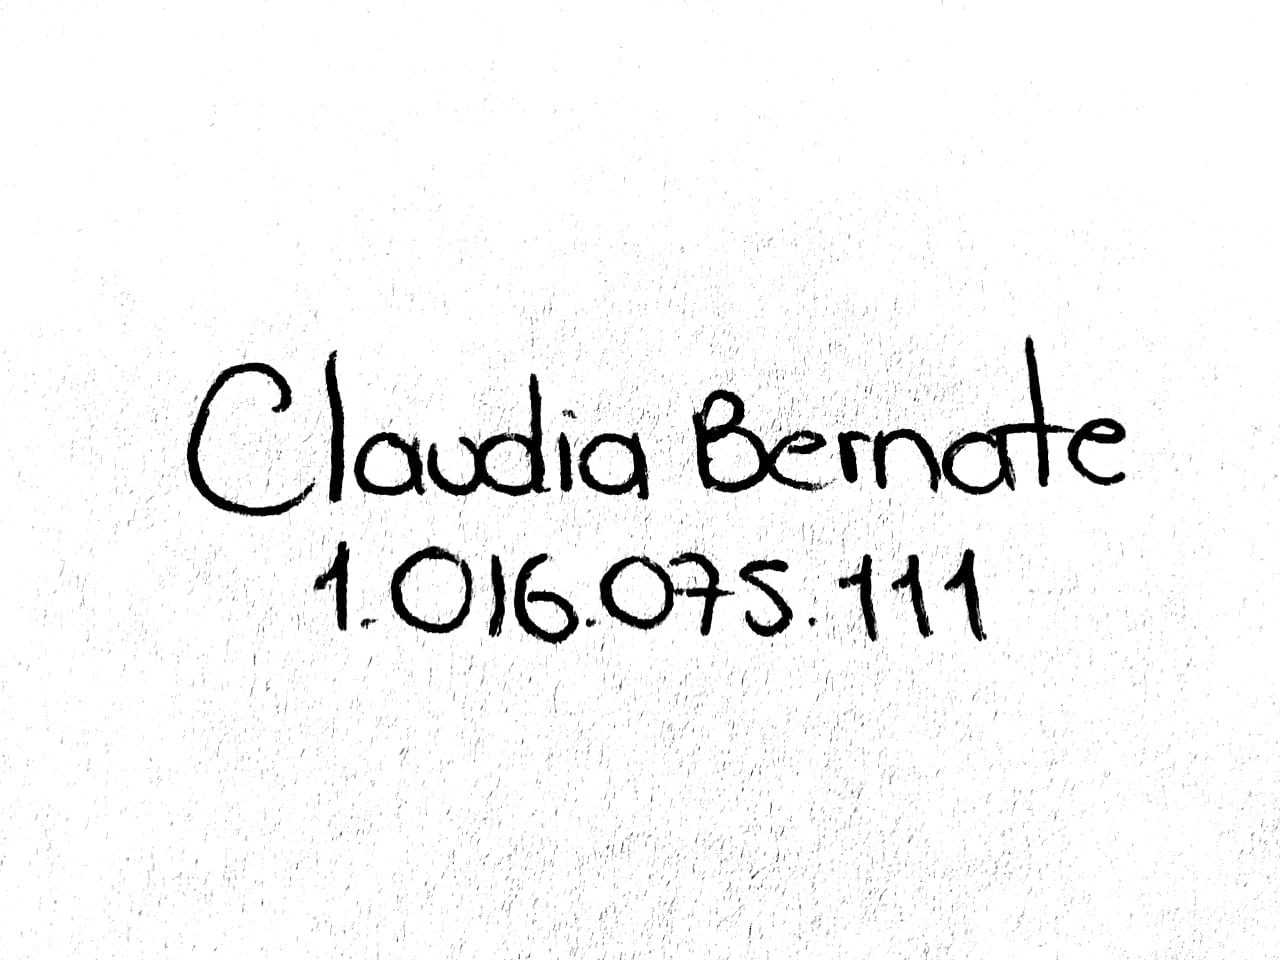 Claudia Bernate
1.016.075.111